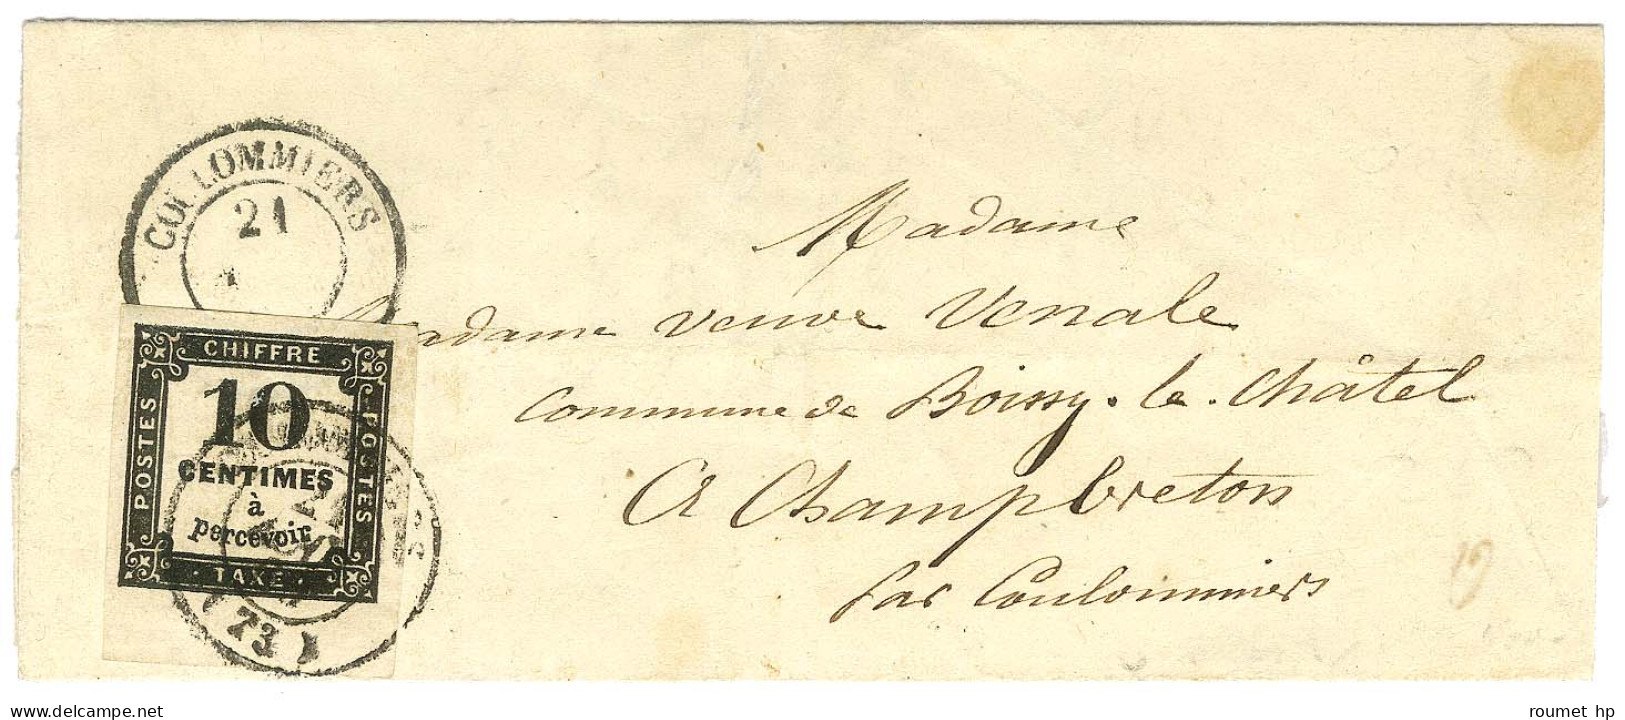 COULOMMIERS
21
CHIFFRE
POSTES
10
CENTIMES
à
percevoir
POSTES
TAXE
21
(73)
Madame
Madame veuve Venale
Commune de Boissy-le-Châtel
A Champbreton
par Coulommiers
delcampe.net
roumet hp